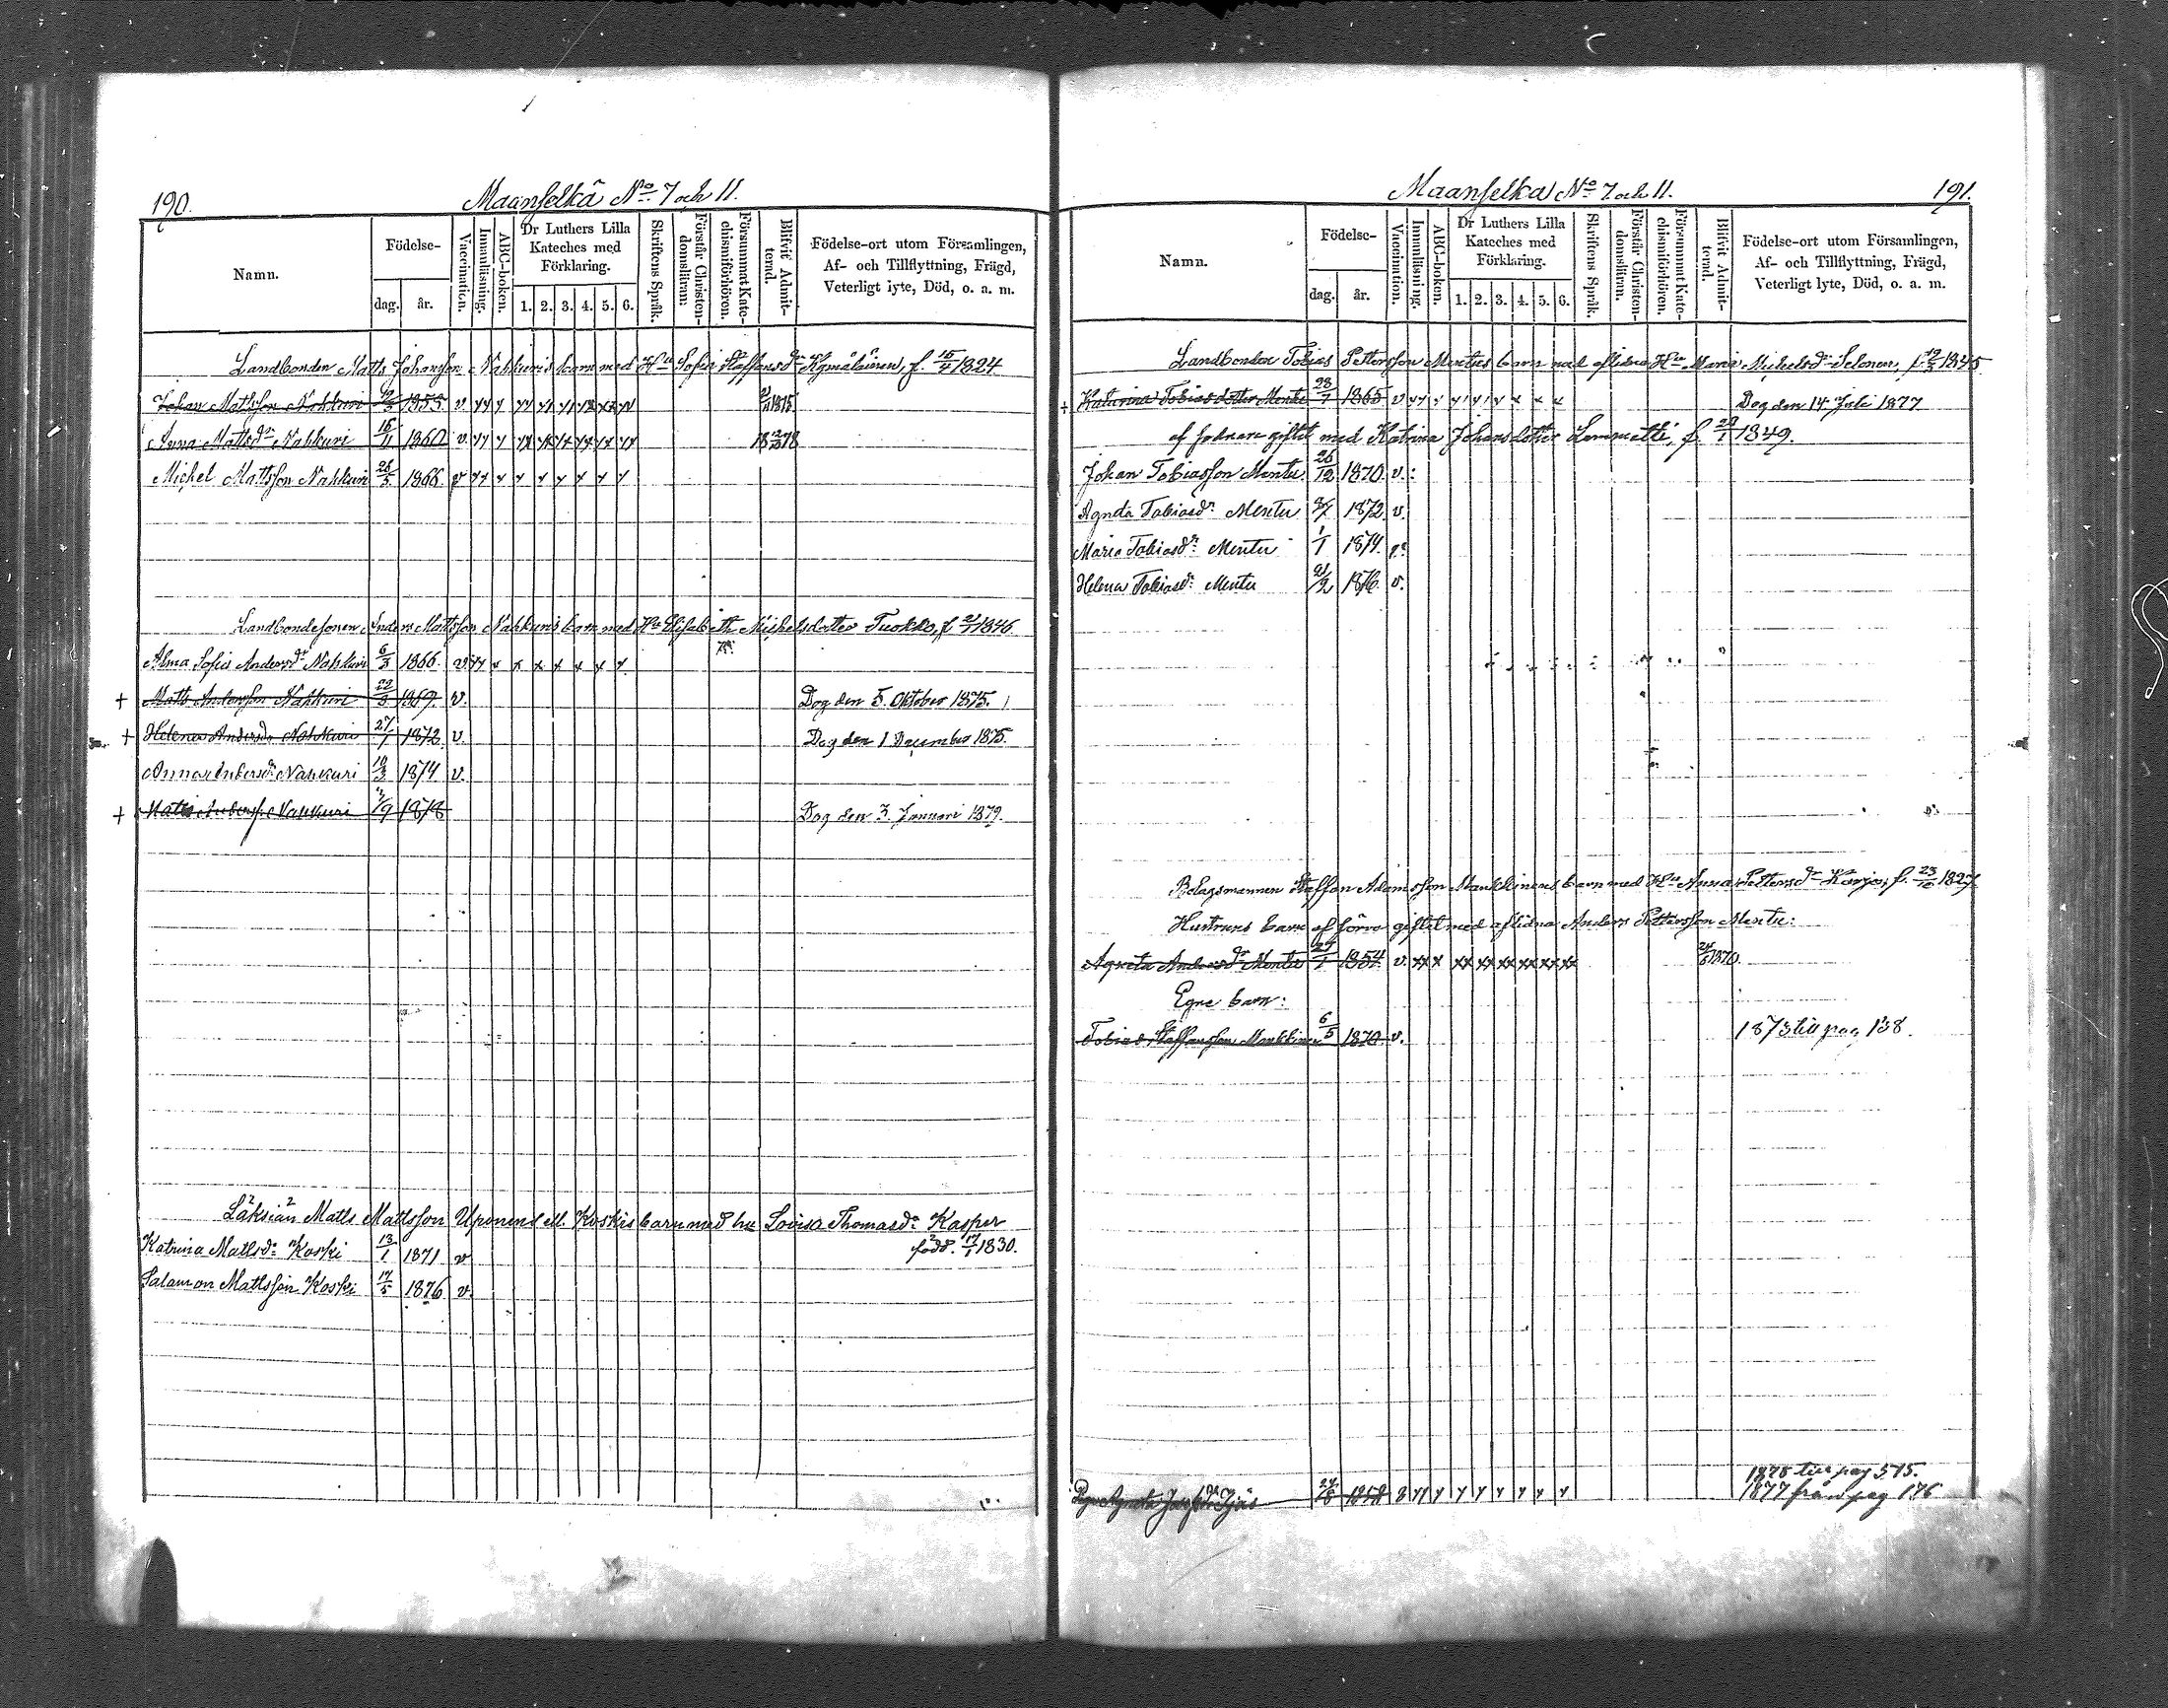 190.
Maanselkä No 7 och 11.
Namn.
Födelse-
dag.
år.
Vaccination.
Innanläsning.
ABC-boken.
Dr Luthers Lilla Kateches med Förklaring.
1. 2. 3. 4. 5. 6.
Skriftens Språk.
Förstår Christendomsläran.
Försummat Katechismiförhören.
Blifvit Admitterad.
Födelse-ort utom Församlingen,
Af- och Tillflyttning, Frägd,
Veterligt lyte, Död, o. a. m.
Landbonden Matts Johansson Nahkuris barn med Hu Sofia Staffansdr f. 15/4 1824
Johan Mattsson Nahkuri 1853 v.
Anna Mattsdr Nahkuri 15/11 1860 v.
Michel Mattsson Nahkuri 28/5 1866 v
Landbondesonen Anders Mattsson Nahkuris barn med Hu Elisabeth Michelsdotter Tuokko, f. 1846.
Alma Sofia Andersdr Nahkuri 6/3 1866 v
+ Matts Andersson Nahkuri 1869 v. Dog den 5. Oktober 1875.
+ Helena Andersdr Nahkuri 27/1 1872 v. Dog den 1 December 1875.
Anna Andersdr Nahkuri 10/3 1874 v.
+ Matts Anderss. Nahkuri 1878 Dog den 3. Januari 1879.
Matts Mattsson Uponens ell. Koskis barn med hu Lovisa Thomasdr Kasper
född. 17/1 1830.
Katrina Mattsdr Koski 13/1 1871 v
Salamon Mattsson Koski 17/5 1876 v
Maanselkä No 7 och 11.
191.
Namn.
Födelse-
dag.
år.
Vaccination.
Innanläsning.
ABC-boken.
Dr Luthers Lilla Kateches med Förklaring.
1. 2. 3. 4. 5. 6.
Skriftens Språk.
Förstår Christendomsläran.
Försummat Katechismiförhören.
Blifvit Admitterad.
Födelse-ort utom Församlingen,
Af- och Tillflyttning, Frägd,
Veterligt lyte, Död, o. a. m.
Landbonden Tobias Pettersson Mentus barn med aflidna Hu Maria Michelsdr Selonen, f. 1845
+ Katarina Tobiasdotter Mentu 28/7 1865 v Dog den 14 Juli 1877
giftet med Katrina Johansdotter f. 1849.
Johan Tobiasson Mentu 26/12 1870. v.
Agneta Tobiasdr Mentu 1872 v.
Maria Tobiasdr Mentu 1/1 1874.
Helena Tobiasdr Mentu 1876. v.
Bolagsmannen Staffan Adamsson Mankkinens barn med Hu Anna Pettersdr f. 1827.
Hustruns barn af förra giftet med aflidna Anders Pettersson Mentu:
Agneta Andersdr Mentu 1854 v. 1870.
Egne barn:
Tobias Staffansson Mankkinen 6/5 1870 v. 1873 till pag 138.
1878 till pag 575.
Agneta Josefsdr 1858 1877 från pag 176